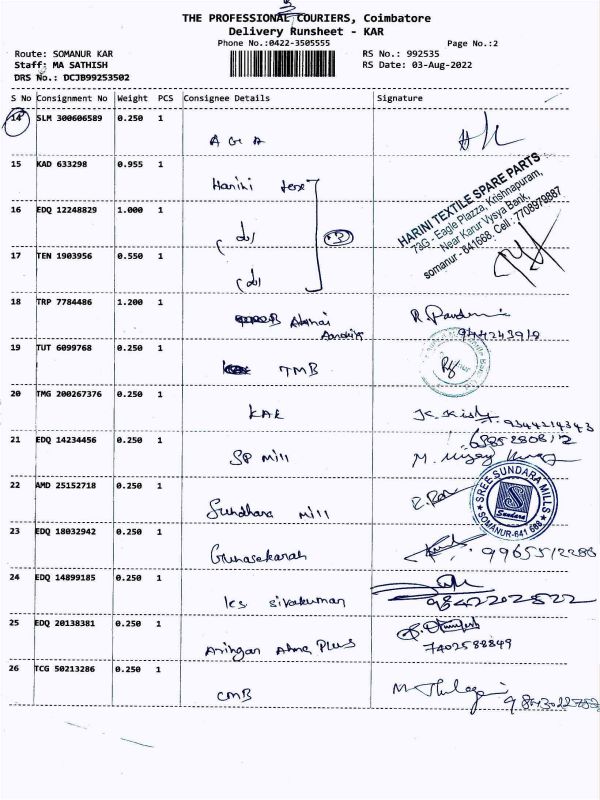 THE PROFESSIONAL COURIERS, Coimbatore
Delivery Runsheet - KAR
Phone No.:0422-3505555
Page No.:2
Route: SOMANUR KAR
RS No.: 992535
Staff: MA SATHISH
RS Date: 03-Aug-2022
DRS No.: DCJB99253502
S No Consignment No Weight PCS Consignee Details Signature
14 SLM 300606589 0.250 1
A G A
15 KAD 633298 0.955 1
Harini
HARINI TEXTILE SPARE PARTS
73G - Eagle Plazza, Krishnapuram,
Near Karur Vysya Bank,
somanur - 641668. Cell : 7708979887
16 EDQ 12248829 1.000 1
17 TEN 1903956 0.550 1
18 TRP 7784486 1.200 1
19 TUT 6099768 0.250 1
TMB
20 TMG 200267376 0.250 1
KAR
9344214343
21 EDQ 14234456 0.250 1
SP Mill
22 AMD 25152718 0.250 1
Sundhara Mill
SREE SUNDARA MILLS
Sundara
SOMANUR-641 668
23 EDQ 18032942 0.250 1
Gunasekaran
24 EDQ 14899185 0.250 1
KS Sivakumar
25 EDQ 20138381 0.250 1
Plus
7402588849
26 TCG 50213286 0.250 1
CMB